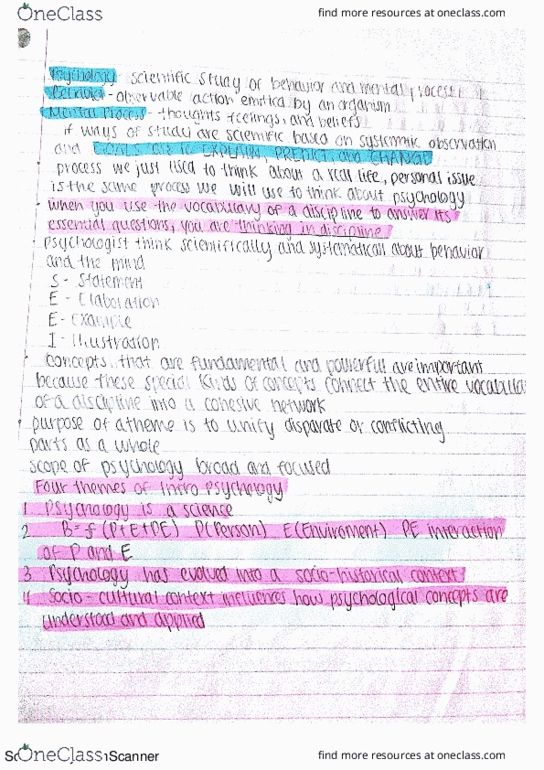 OneClass
find more resources at oneclass.com
Psychology - scientific study of behavior and mental processes
Behavior - observable action emitted by an organism
Mental Process - thoughts feelings, and beliefs
if ways of study are scientific based on systematic observation
and GOALS are to EXPLAIN, PREDICT, and CHANGE
process we just used to think about a real life, personal issue
is the same process we will use to think about psychology
when you use the vocabulary of a discipline to answer its
essential questions, you are thinking in discipline
psychologist think scientifically and systematical about behavior
and the mind
S - Statement
E - Elaboration
E - Example
I - Illustration
concepts that are fundamental and powerful are important
because these special kinds of concepts connect the entire vocabula
of a discipline into a cohesive network
purpose of a theme is to unify disparate or conflicting
parts as a whole
scope of psychology broad and focused
Four themes of Intro Psychology
1 Psychology is a science
2 B = f (P+E+PE) P(Person) E(Enviroment) PE interaction
of P and E
3 Psychology has evolved into a socio-historical context
4 Socio-cultural context influences how psychological concepts are
understood and applied
OneClass
Scanner
find more resources at oneclass.com